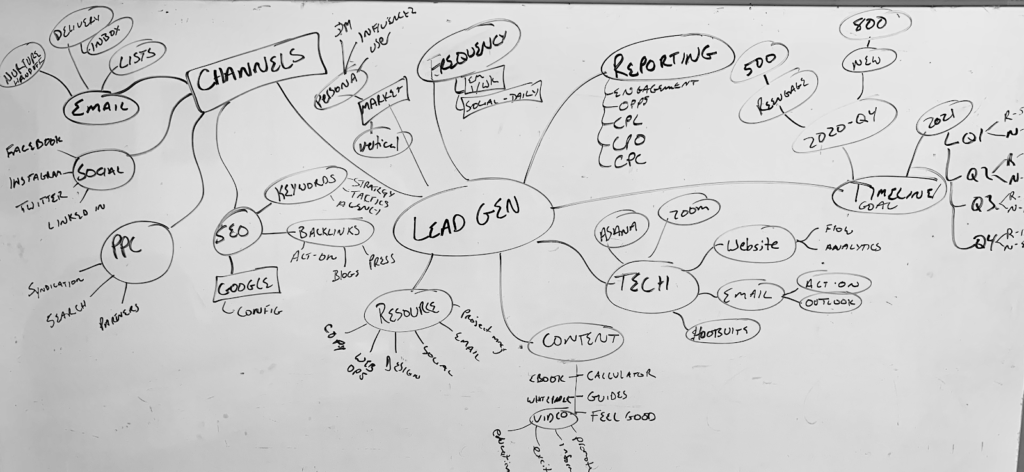 CHANNELS
EMAIL
DELIVERY
INBOX
LISTS
NURTURE
SOCIAL
FACEBOOK
INSTAGRAM
TWITTER
LINKED IN
PPC
SYNDICATION
SEARCH
PARTNERS
SEO
KEYWORDS
STRATEGY
TACTICS
AGENCY
BACKLINKS
ACT-ON
BLOGS
PRESS
GOOGLE
CONFIG
PERSONA
DM
INFLUENCER
USER
MARKET
VERTICAL
FREQUENCY
1/WK
SOCIAL-DAILY
REPORTING
ENGAGEMENT
OPPS
CPL
CPO
CPC
LEAD GEN
TIMELINE/
GOAL
2020-Q4
REENGAGE
500
NEW
800
2021
Q1
R-
N-
Q2
R-
N-
Q3
R-
N-
Q4
R-
N-
TECH
ASANA
ZOOM
WEBSITE
FLOW
ANALYTICS
EMAIL
ACT-ON
OUTLOOK
HOOTSUITE
RESOURCE
COPY
WEB
OPS
DESIGN
SOCIAL
EMAIL
CONTENT
EBOOK
CALCULATOR
GUIDES
VIDEO
FEEL GOOD